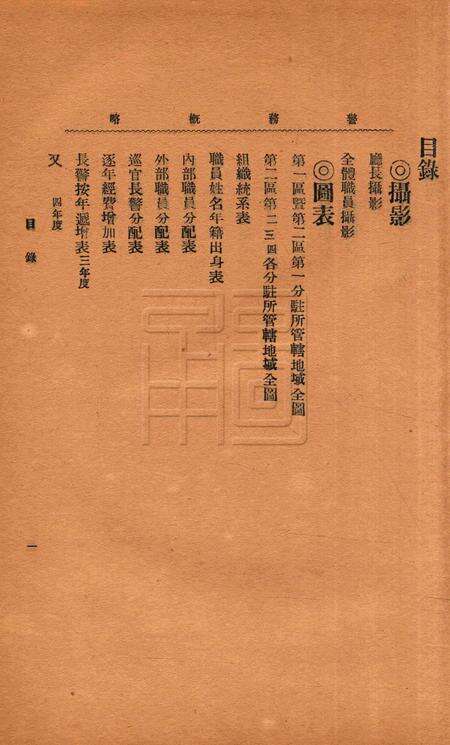 警務概略
目錄
◎攝影
廳長攝影
全體職員攝影
◎圖表
第一區暨第二區第一分駐所管轄地域全圖
第二區第二三四各分駐所管轄地域全圖
組織統系表
職員姓名年籍出身表
內部職員分配表
外部職員分配表
巡官長警分配表
逐年經費增加表
長警按年遞增表三年度
又 四年度
目錄
一